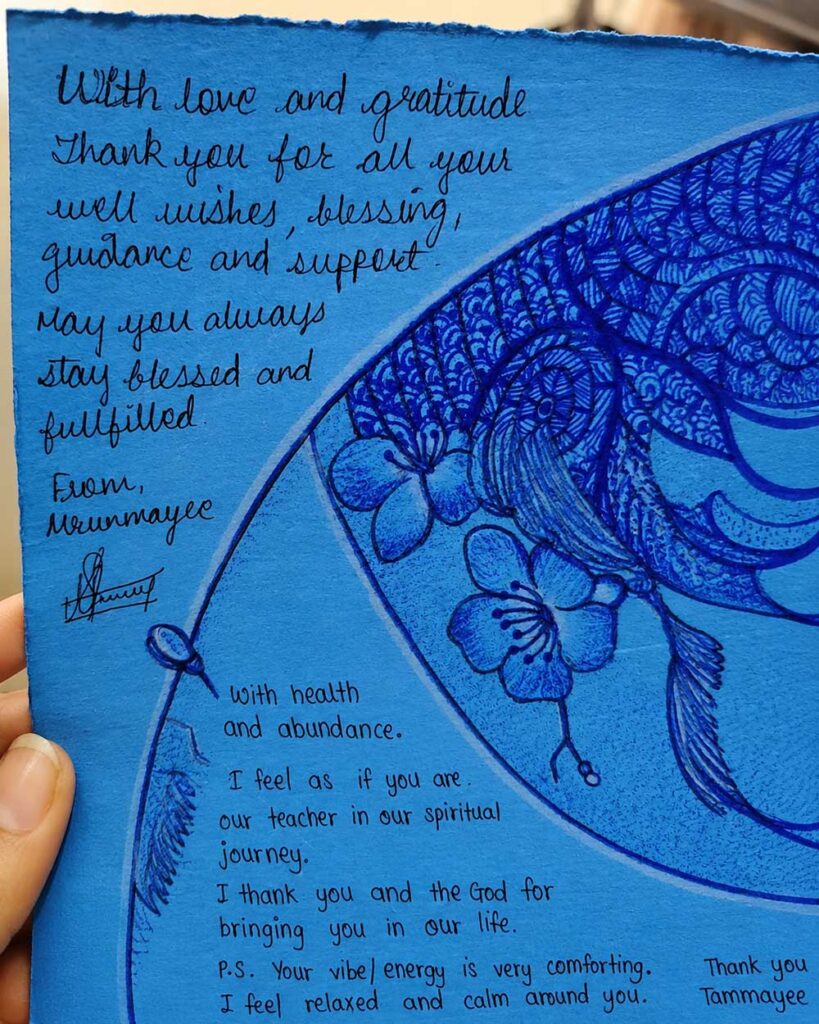 With love and gratitude
Thank you for all your
well wishes, blessing,
guidance and support.
May you always
stay blessed and
fullfilled.
From,
Mrunmayee
With health
and abundance.
I feel as if you are.
our teacher in our spiritual
journey.
I thank you and the God for
bringing you in our life.
P.S. Your vibe/energy is very comforting.
I feel relaxed and calm around you.
Thank you
Tammayee